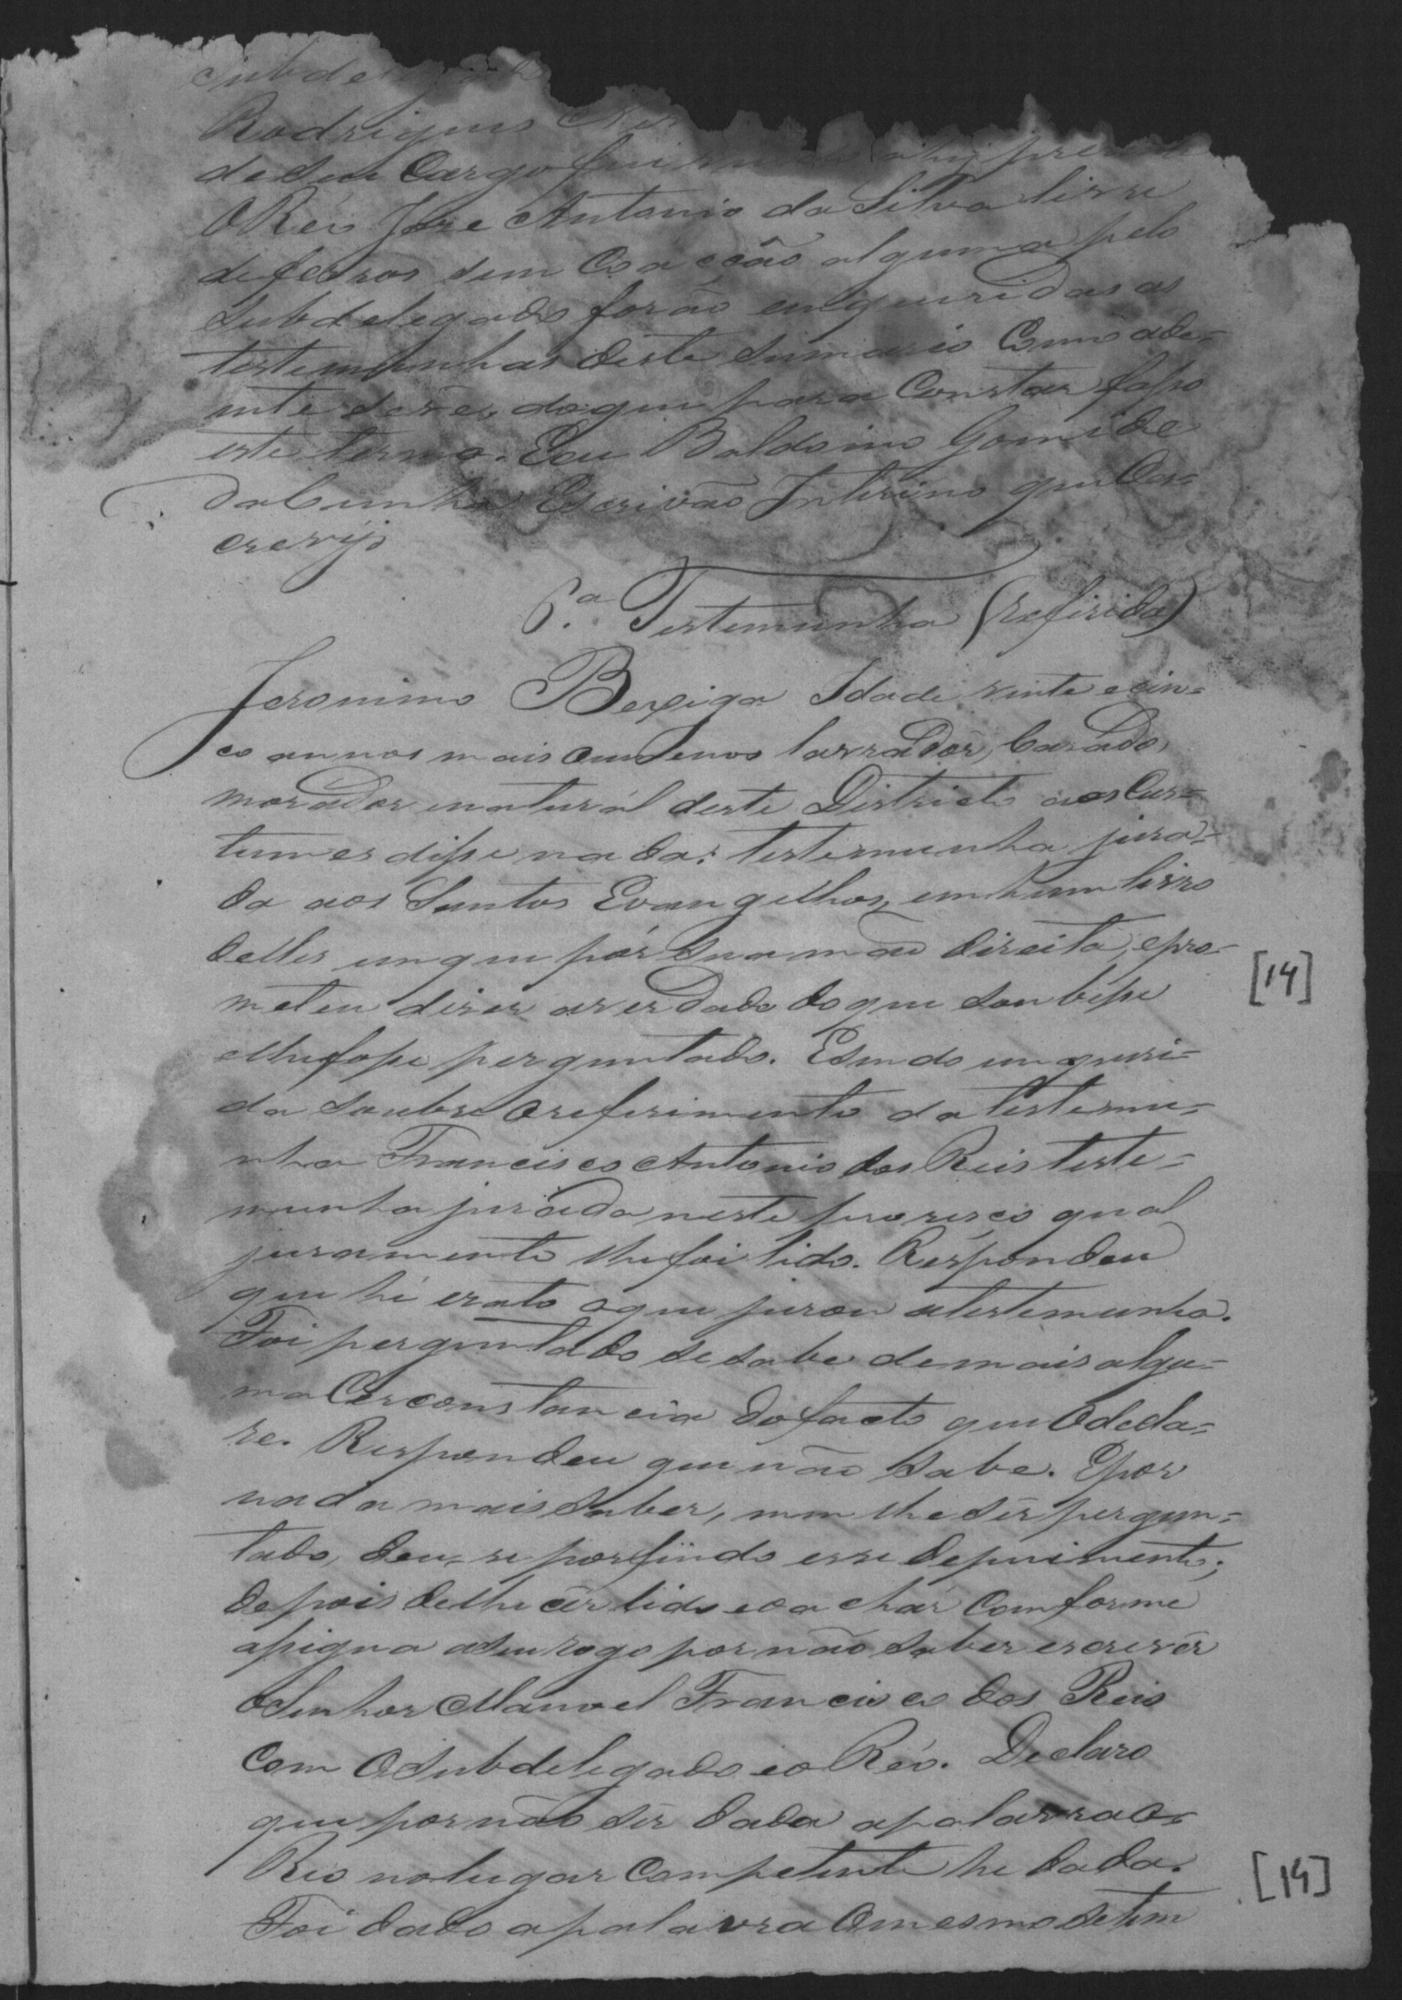 Subdelegado
Rodrigues
de seu Cargo fui
O Réo Jose Antonio da Silva livre
de ferros sem Coacção alguma pelo
Subdelegado forão enqueridas as
testemunhas deste sumario Como adi-
ante se vê, do que para Constar faço
este termo. Eu Baldoino Gomide
da Cunha Escrivão Interino que es-
crevy
6.ª Testemunha (referida)
Jeronimo Bexiga Idade vinte e cin=
co annos mais ou menos lavrador, Casado,
morador e natural deste Districto aos Cus=
tumes disse nada: testemunha jura=
da aos Santos Evangelhos, em hum livro
delles em que pôs sua mão direita, e pro=
meteu diser averdade do que soubesse
elhe fosse perguntado. E sendo enqueri=
da soubre o referimento da testemu=
nha Francisco Antonio dos Reis teste=
munha jurada neste proseço qual
juramento lhe foi lido. Respondeu
que hé exato o que jurou a testemunha.
Foi perguntado se sabe de mais algu=
ma Cerconstancia do facto que O decla=
re. Respondeu que não sabe. E por
nada mais saber, nem lhe sêr pergun=
tado, deu-se por findo esse depuimento;
depois de lhe cêr lido e o achár Comforme
assigna a seu rogo por não saber escrevêr
o Senhor Manoel Francisco dos Reis
Com O Subdelegado e o Réo. Declaro
que por não sêr dada apalavra ao
Reo no lugar Competente he dada.
Foi dado apalavra Ao mesmo se tem
[14]
[14]